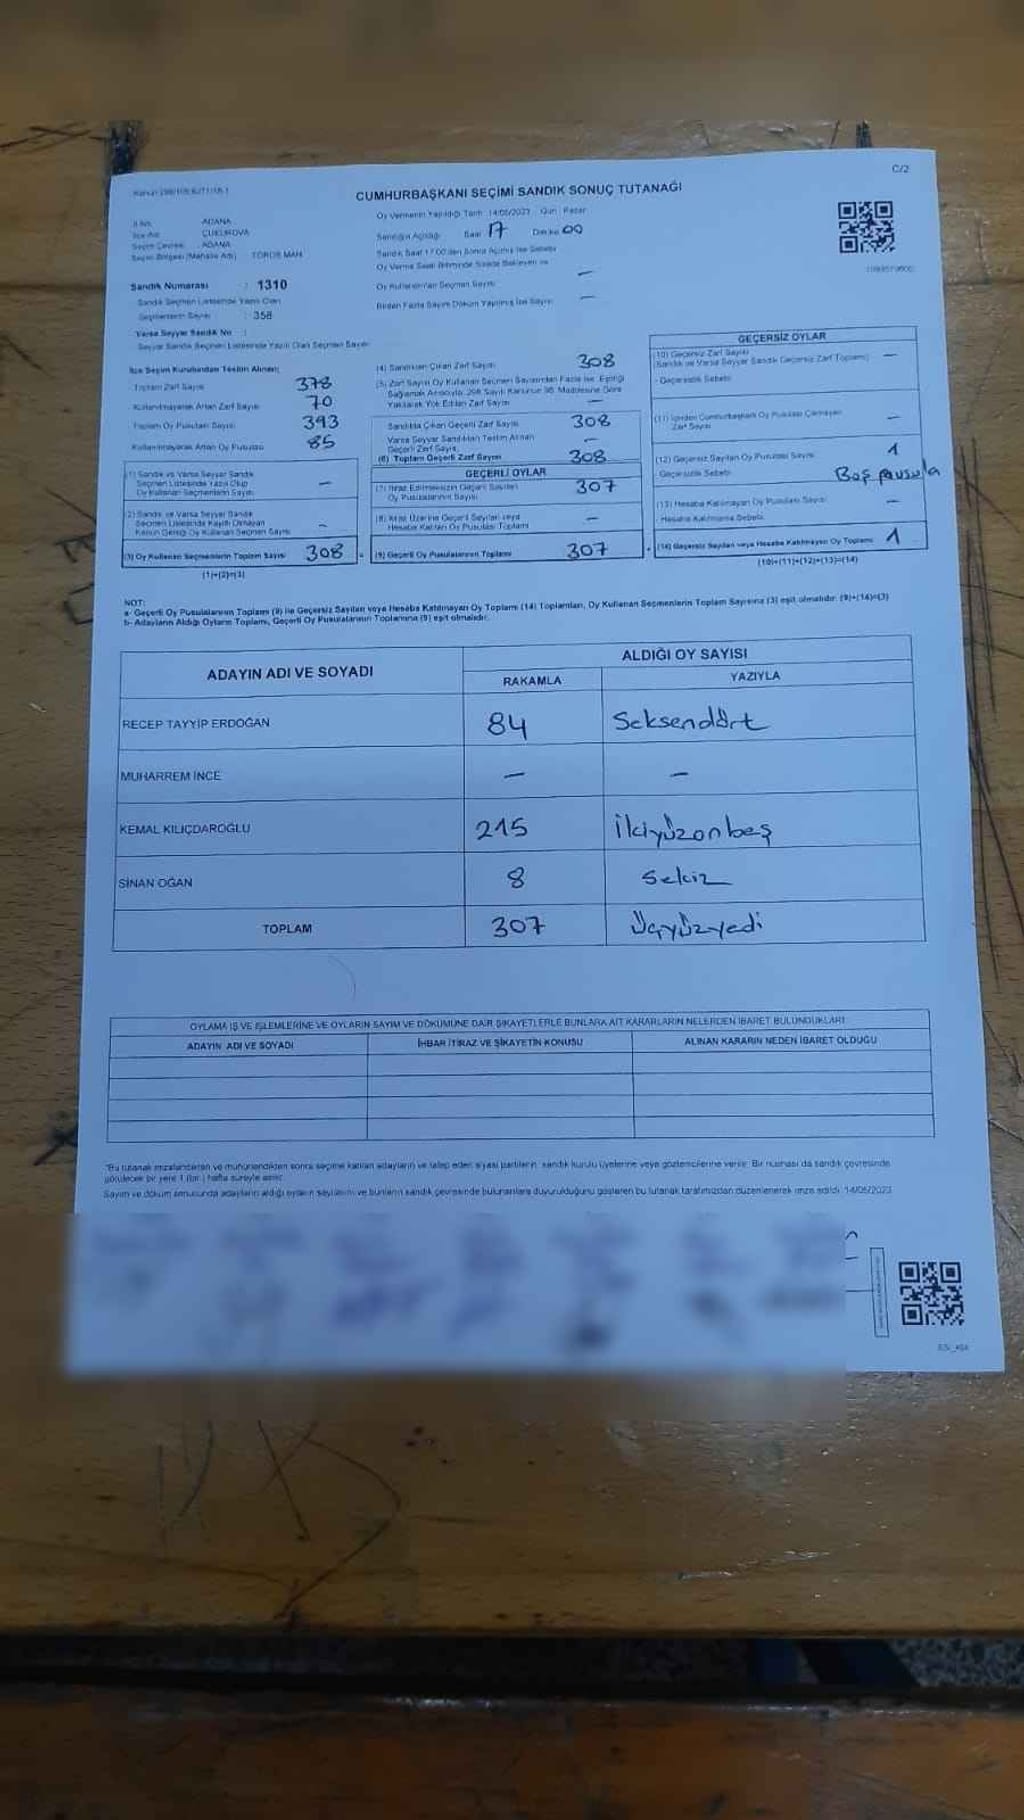 C/2
CUMHURBAŞKANI SEÇİMİ SANDIK SONUÇ TUTANAĞI
İl Adı : ADANA
İlçe Adı : ÇUKUROVA
Seçim Çevresi : ADANA
Seçim Bölgesi (Mahalle Adı) : TOROS MAH.
Sandık Numarası : 1310
Sandık Seçmen Listesinde Yazılı Olan
Seçmenlerin Sayısı : 358
Varsa Seyyar Sandık No :
Seyyar Sandık Seçmen Listesinde Yazılı Olan Seçmen Sayısı
Oy Vermenin Yapıldığı Tarih : 14/05/2023 Gün : Pazar
Sandığın Açıldığı Saat 17 Dakika 00
Sandık Saat 17:00'den Sonra Açılmış İse Sebebi
Oy Verme Saati Bitiminde Sırada Bekleyen ve
Oy Kullanan Seçmen Sayısı —
Birden Fazla Sayım Döküm Yapılmış İse Sayısı —
İlçe Seçim Kurulundan Teslim Alınan;
Toplam Zarf Sayısı 378
Kullanılmayarak Artan Zarf Sayısı 70
Toplam Oy Pusulası Sayısı 393
Kullanılmayarak Artan Oy Pusulası 85
(1) Sandık ve Varsa Seyyar Sandık
Seçmen Listesinde Yazılı Olup
Oy Kullanan Seçmenlerin Sayısı —
(2) Sandık ve Varsa Seyyar Sandık
Seçmen Listesinde Kayıtlı Olmayan
Kanun Gereği Oy Kullanan Seçmen Sayısı -
(3) Oy Kullanan Seçmenlerin Toplam Sayısı 308
(1)+(2)=(3)
(4) Sandıktan Çıkan Zarf Sayısı 308
(5) Zarf Sayısı Oy Kullanan Seçmen Sayısından Fazla İse, Eşitliği
Sağlamak Amacıyla 298 Sayılı Kanunun 98. Maddesine Göre
Yakılarak Yok Edilen Zarf Sayısı —
Sandıkta Çıkan Geçerli Zarf Sayısı 308
Varsa Seyyar Sandıktan Teslim Alınan
Geçerli Zarf Sayısı —
(6) Toplam Geçerli Zarf Sayısı 308
GEÇERLİ OYLAR
(7) İtiraz Edilmeksizin Geçerli Sayılan
Oy Pusulalarının Sayısı 307
(8) İtiraz Üzerine Geçerli Sayılan veya
Hesaba Katılan Oy Pusulası Toplamı —
(9) Geçerli Oy Pusulalarının Toplamı 307
GEÇERSİZ OYLAR
(10) Geçersiz Zarf Sayısı
(Sandık ve Varsa Seyyar Sandık Geçersiz Zarf Toplamı) —
- Geçersizlik Sebebi
(11) İçinden Cumhurbaşkanı Oy Pusulası Çıkmayan
Zarf Sayısı —
(12) Geçersiz Sayılan Oy Pusulası Sayısı 1
Geçersizlik Sebebi Boş pusula
(13) Hesaba Katılmayan Oy Pusulası Sayısı —
- Hesaba Katılmama Sebebi
(14) Geçersiz Sayılan veya Hesaba Katılmayan Oy Toplamı 1
(10)+(11)+(12)+(13)=(14)
NOT:
a- Geçerli Oy Pusulalarının Toplamı (9) ile Geçersiz Sayılan veya Hesaba Katılmayan Oy Toplamı (14) Toplamları, Oy Kullanan Seçmenlerin Toplam Sayısına (3) eşit olmalıdır. (9)+(14)=(3)
b- Adayların Aldığı Oyların Toplamı, Geçerli Oy Pusulalarının Toplamına (9) eşit olmalıdır.
ADAYIN ADI VE SOYADI
ALDIĞI OY SAYISI
RAKAMLA YAZIYLA
RECEP TAYYİP ERDOĞAN 84 Seksendört
MUHARREM İNCE — —
KEMAL KILIÇDAROĞLU 215 İkiyüzonbeş
SİNAN OĞAN 8 Sekiz
TOPLAM 307 Üçyüzyedi
OYLAMA İŞ VE İŞLEMLERİNE VE OYLARIN SAYIM VE DÖKÜMÜNE DAİR ŞİKAYETLERLE BUNLARA AİT KARARLARIN NELERDEN İBARET BULUNDUKLARI
ADAYIN ADI VE SOYADI İHBAR İTİRAZ VE ŞİKAYETİN KONUSU ALINAN KARARIN NEDEN İBARET OLDUĞU
"Bu tutanak imzalandıktan ve mühürlendikten sonra seçime katılan adayların ve talep eden siyasi partilerin, sandık kurulu üyelerine veya gözlemcilerine verilir. Bir nüshası da sandık çevresinde
görülecek bir yere 1 (bir) hafta süreyle asılır.
Sayım ve döküm sonucunda adayların aldığı oyların sayılarını ve bunların sandık çevresinde bulunanlara duyurulduğunu gösteren bu tutanak tarafımızdan düzenlenerek imza edildi. 14/05/2023